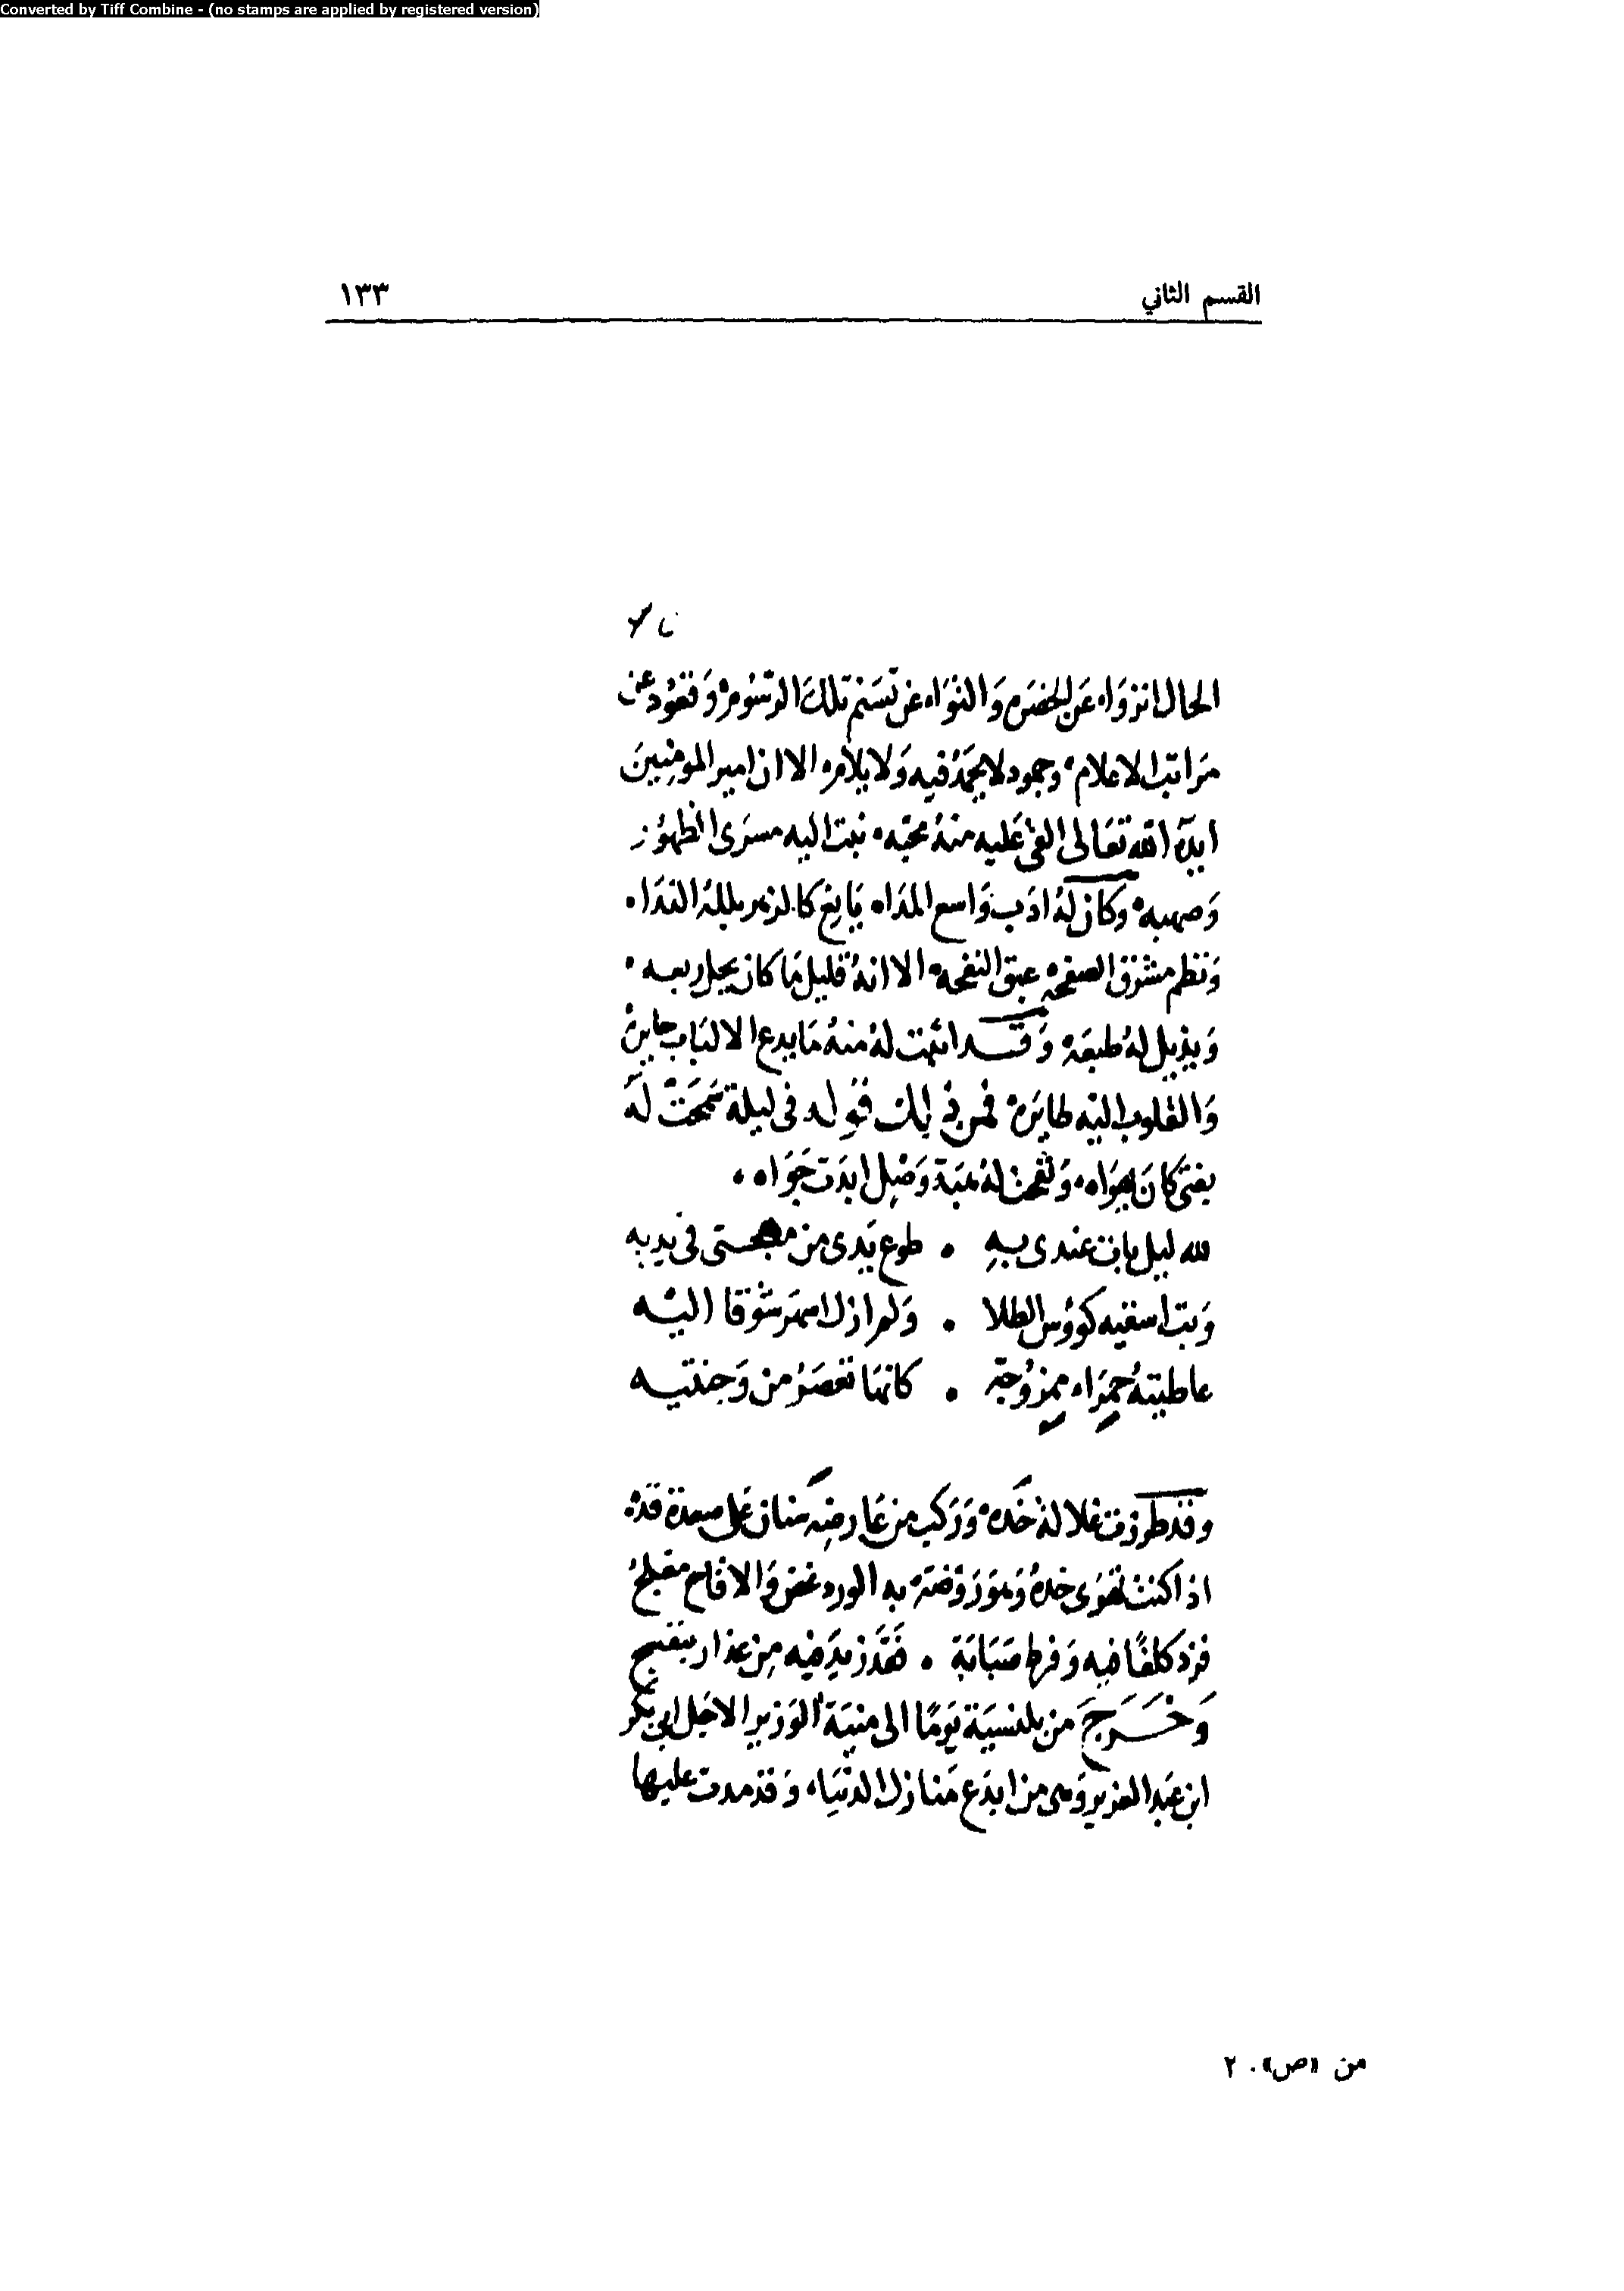 Converted by Tiff Combine - (no stamps are applied by registered version)
القسم الثاني ١٣٣
الحال انزواء عن الخضرم والتواء عن تسنم تلك الرسوم وقعود عن
مراتب الاعلام وجمود لا يحمد فيه ولا يلام الا ان امير المومنين
ايده الله تعالى القى عليه منه محبه جنبت اليه مسرى الظهور
وصهبه وكان له ادب واسع المداء يانع كالزهر بلله النداء
ونظم مشرق الصفحه عبق النفحه الا انه قليلا ما كان يحل ربعه
ويذيل له طبعه وقد اثبت له منه ما يدع الالباب حايره
والقلوب اليه طايره فمن ذلك قوله في ليلة سمحت له
بفتى كان يهواه ونفحت له هبة وصل ابدت جواه
لله ليل بات عندي به طوع يدي من مهجتي في يديه
وبت اسقيه كووس الطلا ولم ازل اسهر شوقا اليه
عاطيته حمراء ممزوجة كانها تعصر من وجنتيه
وقد طرزت غلالة خده وركب من عارضه سنان على صعدة قده
اذا كنت تهوى خده وهو روضة به الورد غض والاقاح مفلج
فزد كلفا فيه وفرط صبابة فقد زيد فيه من عذار بنفسج
وخرج من بلنسية يوما الى منية الوزير الاجل ابي بكر
ابن عبد العزيز وهي من ابدع منازل الدنيا وقد مدت عليها
من «ص» . ٢